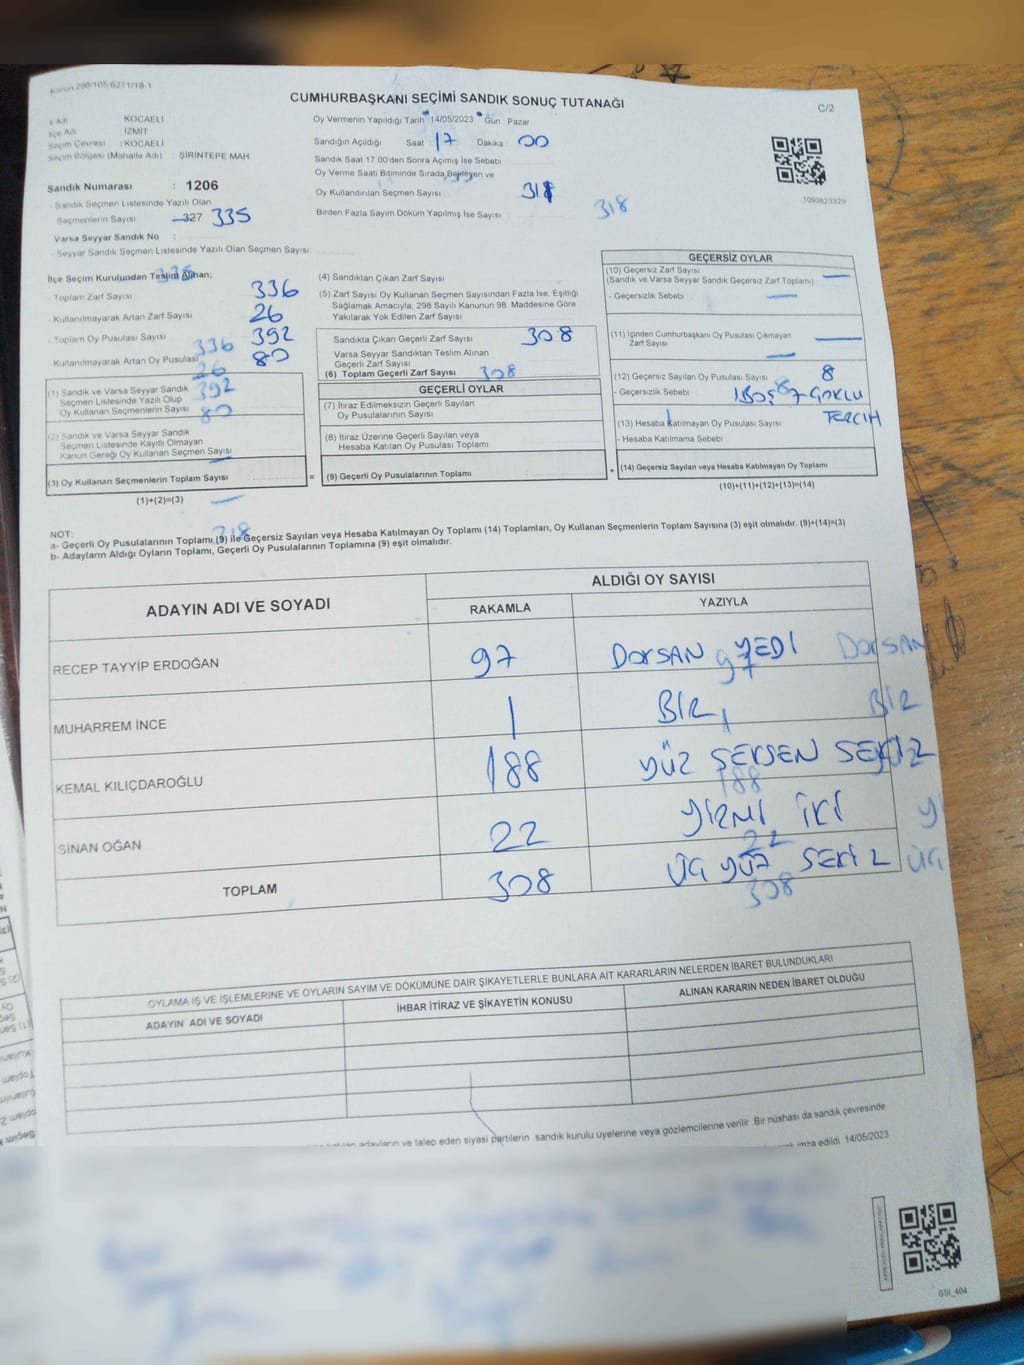 Kanun 298/105 6271/18-1
CUMHURBAŞKANI SEÇİMİ SANDIK SONUÇ TUTANAĞI
C/2
İl Adı KOCAELİ
İlçe Adı İZMİT
Seçim Çevresi : KOCAELİ
Seçim Bölgesi (Mahalle Adı) : ŞİRİNTEPE MAH
Sandık Numarası : 1206
Sandık Seçmen Listesinde Yazılı Olan
Seçmenlerin Sayısı 327 335
Varsa Seyyar Sandık No :
- Seyyar Sandık Seçmen Listesinde Yazılı Olan Seçmen Sayısı:
Oy Vermenin Yapıldığı Tarih 14/05/2023 Gün : Pazar
Sandığın Açıldığı Saat 17 Dakika 00
Sandık Saat 17 00'den Sonra Açımış İse Sebebi
Oy Verme Saati Bitiminde Sırada Bekleyen ve
Oy Kullandırılan Seçmen Sayısı 318
Birden Fazla Sayım Döküm Yapılmış İse Sayısı 318
1093823329
İlçe Seçim Kurulundan Teslim Alınan;
- Toplam Zarf Sayısı 336
- Kullanılmayarak Artan Zarf Sayısı 26
- Toplam Oy Pusulası Sayısı 392
336
- Kullanılmayarak Artan Oy Pusulası 80
26
(1) Sandık ve Varsa Seyyar Sandık 392
Seçmen Listesinde Yazılı Olup
Oy Kullanan Seçmenlerin Sayısı 80
(2) Sandık ve Varsa Seyyar Sandık
Seçmen Listesinde Kayıtlı Olmayan
Kanun Gereği Oy Kullanan Seçmen Sayısı
(3) Oy Kullanan Seçmenlerin Toplam Sayısı
(1)+(2)=(3)
(4) Sandıktan Çıkan Zarf Sayısı
(5) Zarf Sayısı Oy Kullanan Seçmen Sayısından Fazla İse, Eşitliği
Sağlamak Amacıyla, 298 Sayılı Kanunun 98. Maddesine Göre
Yakılarak Yok Edilen Zarf Sayısı
Sandıkta Çıkan Geçerli Zarf Sayısı 308
Varsa Seyyar Sandıktan Teslim Alınan
Geçerli Zarf Sayısı
(6) Toplam Geçerli Zarf Sayısı 308
GEÇERLİ OYLAR
(7) İtiraz Edilmeksizin Geçerli Sayılan
Oy Pusulalarının Sayısı
(8) İtiraz Üzerine Geçerli Sayılan veya
Hesaba Katılan Oy Pusulası Toplamı
= (9) Geçerli Oy Pusulalarının Toplamı
GEÇERSİZ OYLAR
(10) Geçersiz Zarf Sayısı
(Sandık ve Varsa Seyyar Sandık Geçersiz Zarf Toplamı)
- Geçersizlik Sebebi
(11) İçinden Cumhurbaşkanı Oy Pusulası Çıkmayan
Zarf Sayısı
(12) Geçersiz Sayılan Oy Pusulası Sayısı 8
- Geçersizlik Sebebi 1 BOŞ 8 7 ÇOKLU
TERCİH
(13) Hesaba Katılmayan Oy Pusulası Sayısı
- Hesaba Katılmama Sebebi
+ (14) Geçersiz Sayılan veya Hesaba Katılmayan Oy Toplamı
(10)+(11)+(12)+(13)=(14)
318
NOT:
a- Geçerli Oy Pusulalarının Toplamı (9) ile Geçersiz Sayılan veya Hesaba Katılmayan Oy Toplamı (14) Toplamları, Oy Kullanan Seçmenlerin Toplam Sayısına (3) eşit olmalıdır. (9)+(14)=(3)
b- Adayların Aldığı Oyların Toplamı, Geçerli Oy Pusulalarının Toplamına (9) eşit olmalıdır.
ADAYIN ADI VE SOYADI ALDIĞI OY SAYISI
RAKAMLA YAZIYLA
RECEP TAYYİP ERDOĞAN 97 DOKSAN YEDİ DOKSAN
97
MUHARREM İNCE 1 BİR BİR
KEMAL KILIÇDAROĞLU 188 YÜZ SEKSEN SEKİZ
188
SİNAN OĞAN 22 YİRMİ İKİ Y
22
TOPLAM 308 ÜÇ YÜZ SEKİZ ÜÇ
308
OYLAMA İŞ VE İŞLEMLERİNE VE OYLARIN SAYIM VE DÖKÜMÜNE DAİR ŞİKAYETLERLE BUNLARA AİT KARARLARIN NELERDEN İBARET BULUNDUKLARI
ADAYIN ADI VE SOYADI İHBAR İTİRAZ VE ŞİKAYETİN KONUSU ALINAN KARARIN NEDEN İBARET OLDUĞU
adayların ve talep eden siyasi partilerin sandık kurulu üyelerine veya gözlemcilerine verilir. Bir nüshası da sandık çevresinde
imza edildi. 14/05/2023
SSI_404